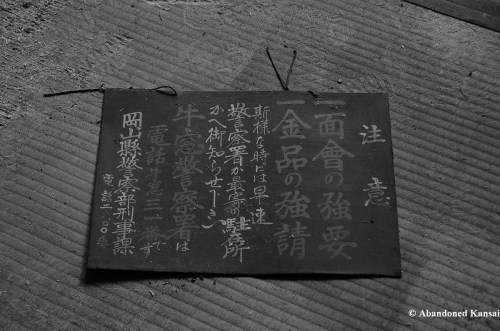 注意
一面會の強要
一金品の強請
斯様な時には早速
警察署か最寄の駐在所
かへ御知らせ下さい
牛窓警察署は
電話牛窓三一番です
岡山縣警察部刑事課
電話二一〇〇番
© Abandoned Kansai